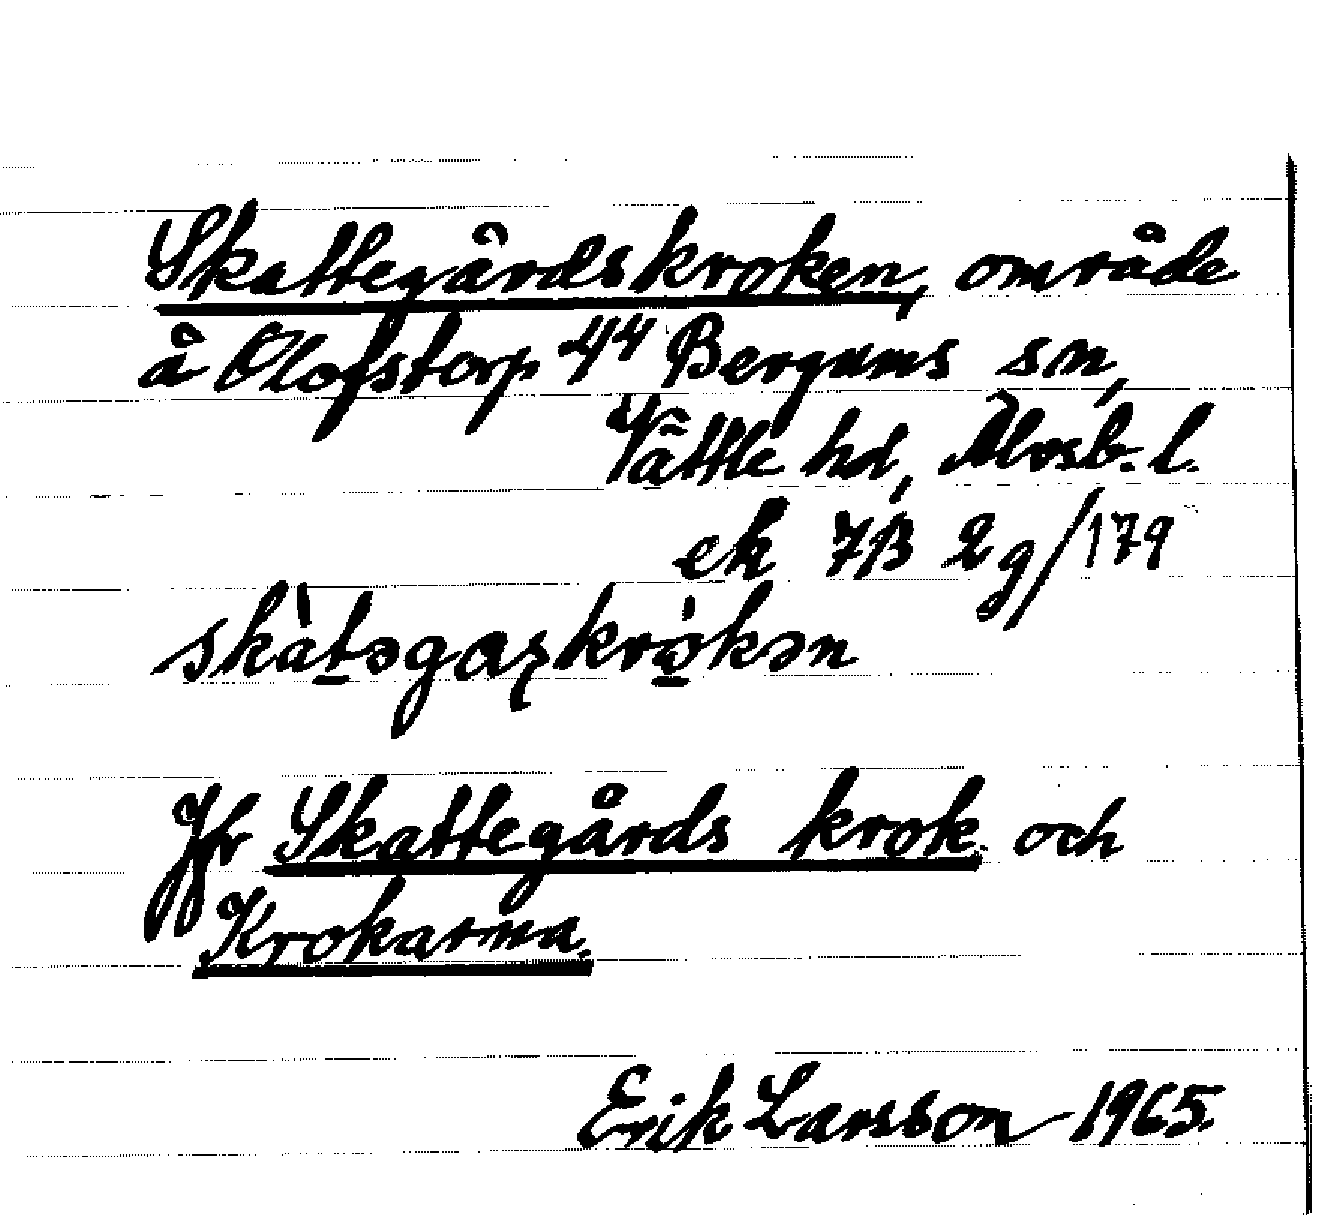 Skattegårdskroken, område
å Olofstorp 4⁴ Bergums sn,
Vättle hd, Älvsb. l.
ek 7B 2g/179
skàt̠əgaʂkrò̠kən
Jfr Skattegårds krok och
Krokarna.
Erik Larsson 1965.